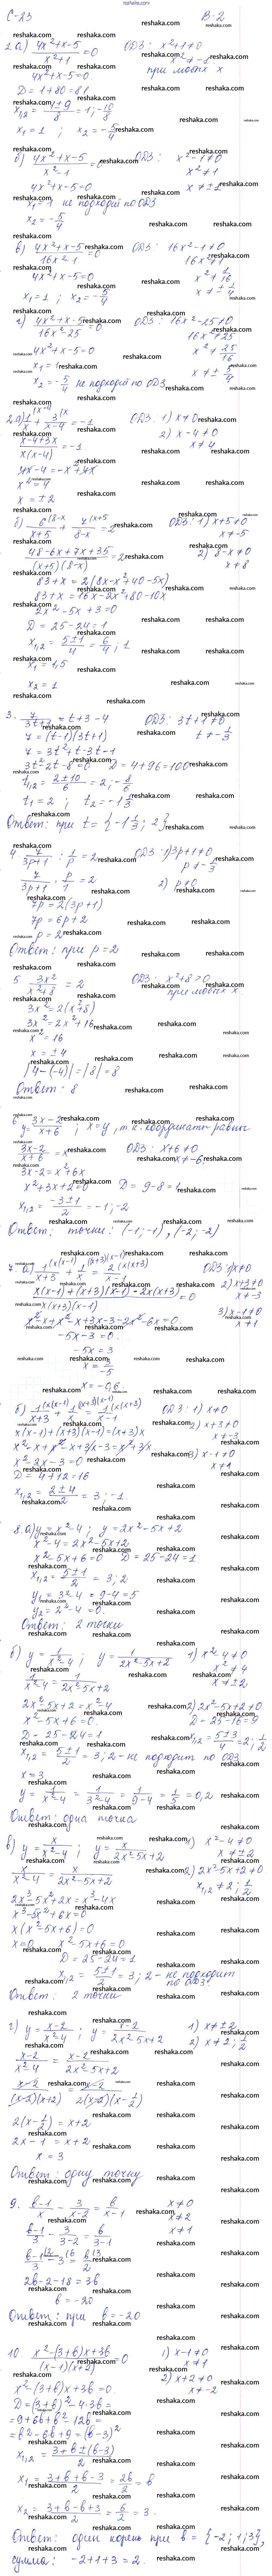 reshaka.com
С-23 В-2
2 а) (4x²+x-5)/(x²+1) = 0 ОДЗ: x²+1≠0
x²≠-1
4x²+x-5=0 при любых x
D=1+80=81
x₁,₂ = (-1±9)/8 = 1; -10/8
x₁=1; x₂=-5/4
б) (4x²+x-5)/(x²-1) = 0 ОДЗ: x²-1≠0
x²≠1
4x²+x-5=0 x≠±1
x₁=1 не подходит по ОДЗ
x₂=-5/4
в) (4x²+x-5)/(16x²-1) = 0 ОДЗ: 16x²-1≠0
16x²≠1
4x²+x-5=0 x²≠1/16
x₁=1; x₂=-5/4 x≠±1/4
г) (4x²+x-5)/(16x²-25) = 0 ОДЗ: 16x²-25≠0
16x²≠25
4x²+x-5=0 x²≠25/16
x₁=1
x₂=-5/4 не подходит по ОДЗ x≠±5/4
2 а) 1/x + 3/(x-4) = -1 ОДЗ: 1) x≠0
(x-4+3x)/(x(x-4)) = -1 2) x-4≠0
x≠4
4x-4=-x²+4x
x²=4
x=±2
б) 6/(x+5) + 7/(8-x) = 2 ОДЗ: 1) x+5≠0
x≠-5
(48-6x+7x+35)/((x+5)(8-x)) = 2 2) 8-x≠0
83+x=2(8x-x²+40-5x) x≠8
83+x=16x-2x²+80-10x
2x²-5x+3=0
D=25-24=1
x₁,₂ = (5±1)/4 = 6/4; 1
x₁=1,5
x₂=1
3. 7/(3t+1) = t+3-4 ОДЗ: 3t+1≠0
7=(t-1)(3t+1) t≠-1/3
7=3t²+t-3t-1
3t²-2t-8=0 D=4+96=100
t₁,₂ = (2±10)/6 = 2; -8/6
t₁=2; t₂=-1 1/3
Ответ: при t={-1 1/3; 2}
4 7/(3p+1) : 1/p = 2 ОДЗ: 1) 3p+1≠0
p≠-1/3
7/(3p+1) · p/1 = 2 2) p≠0
7p=2(3p+1)
7p=6p+2
p=2
Ответ: при p=2
5 3x²/(x²+8) = 2 ОДЗ: x²+8>0
3x²=2(x²+8) при любых x
3x²=2x²+16
x²=16
x=±4
|4-(-4)|=|8|=8
Ответ: 8
6 y=(3x-2)/(x+6); x=y, т.к. координаты равны
(3x-2)/(x+6) = x ОДЗ: x+6≠0
x≠-6
3x-2=x²+6x
x²+3x+2=0 D=9-8=1
x₁,₂ = (-3±1)/2 = -1; -2
Ответ: точки: (-1;-1), (-2;-2)
7. а) 1/(x+3) + 1/x = 2/(x-1) ОДЗ: 1) x≠0
2) x+3≠0
x≠-3
(x(x-1)+(x+3)(x-1)-2x(x+3))/(x(x+3)(x-1)) = 0 3) x-1≠0
x≠1
x²-x+x²-x+3x-3-2x²-6x=0
-5x-3=0
-5x=3
x=3/-5
x=-0,6
б) 1/(x+3) + 1/x = 1/(x-1) ОДЗ: 1) x≠0
x(x-1)+(x+3)(x-1)=(x+3)x 2) x+3≠0
x≠-3
x²-x+x²-x+3x-3=x²+3x 3) x-1≠0
x²-2x-3=0 x≠1
D=4+12=16
x₁,₂ = (2±4)/2 = 3; -1
8. а) y=x²-4; y=2x²-5x+2
x²-4=2x²-5x+2
x²-5x+6=0 D=25-24=1
x₁,₂ = (5±1)/2 = 3; 2
y₁=3²-4=9-4=5
y₂=2²-4=0
Ответ: 2 точки
б) y=1/(x²-4); y=1/(2x²-5x+2) 1) x²-4≠0
x²≠4
1/(x²-4) = 1/(2x²-5x+2) x≠±2
2x²-5x+2=x²-4 2) 2x²-5x+2≠0
x²-5x+6=0 D=25-16=9
D=25-24=1 x₁,₂ = (5±3)/4 = 2; 1/2
x₁,₂ = (5±1)/2 = 3; 2 - не подходит по ОДЗ
x=3
y=1/(x²-4) = 1/(3²-4) = 1/(9-4) = 1/5 = 0,2
Ответ: одна точка
в) y=x/(x²-4); y=x/(2x²-5x+2) 1) x²-4≠0
x≠±2
x/(x²-4) = x/(2x²-5x+2) 2) 2x²-5x+2≠0
x₁,₂≠2; 1/2
2x³-5x²+2x=x³-4x
x³-5x²+6x=0
x(x²-5x+6)=0
x=0 x²-5x+6=0
D=25-24=1
x₁,₂ = (5±1)/2 = 3; 2 - не подходит по ОДЗ
Ответ: 2 точки
г) y=(x-2)/(x²-4); y=(x-2)/(2x²-5x+2) 1) x≠±2
2) x≠2; 1/2
(x-2)/(x²-4) = (x-2)/(2x²-5x+2)
(x-2)/((x-2)(x+2)) = (x-2)/(2(x-2)(x-1/2))
2(x-1/2)=x+2
2x-1=x+2
x=3
Ответ: одну точку
9. (b-1)/x - 3/(x-2) = b/(x-1) x≠0
x≠2
(b-1)/3 - 3/(3-2) = b/(3-1) x≠1
(b-1)/3 - 3 = b/2
2b-2-18=3b
b=-20
Ответ: при b=-20
10 (x²-(3+b)x+3b)/((x-1)(x+2)) = 0 1) x-1≠0
x≠1
2) x+2≠0
x²-(3+b)x+3b=0 x≠-2
D=(3+b)²-4·3b=
=9+6b+b²-12b=
=b²-6b+9=(b-3)²
x₁,₂ = (3+b±(b-3))/2
x₁ = (3+b+b-3)/2 = 2b/2 = b
x₂ = (3+b-b+3)/2 = 6/2 = 3
Ответ: один корень при b={-2; 1; 3},
сумма: -2+1+3=2